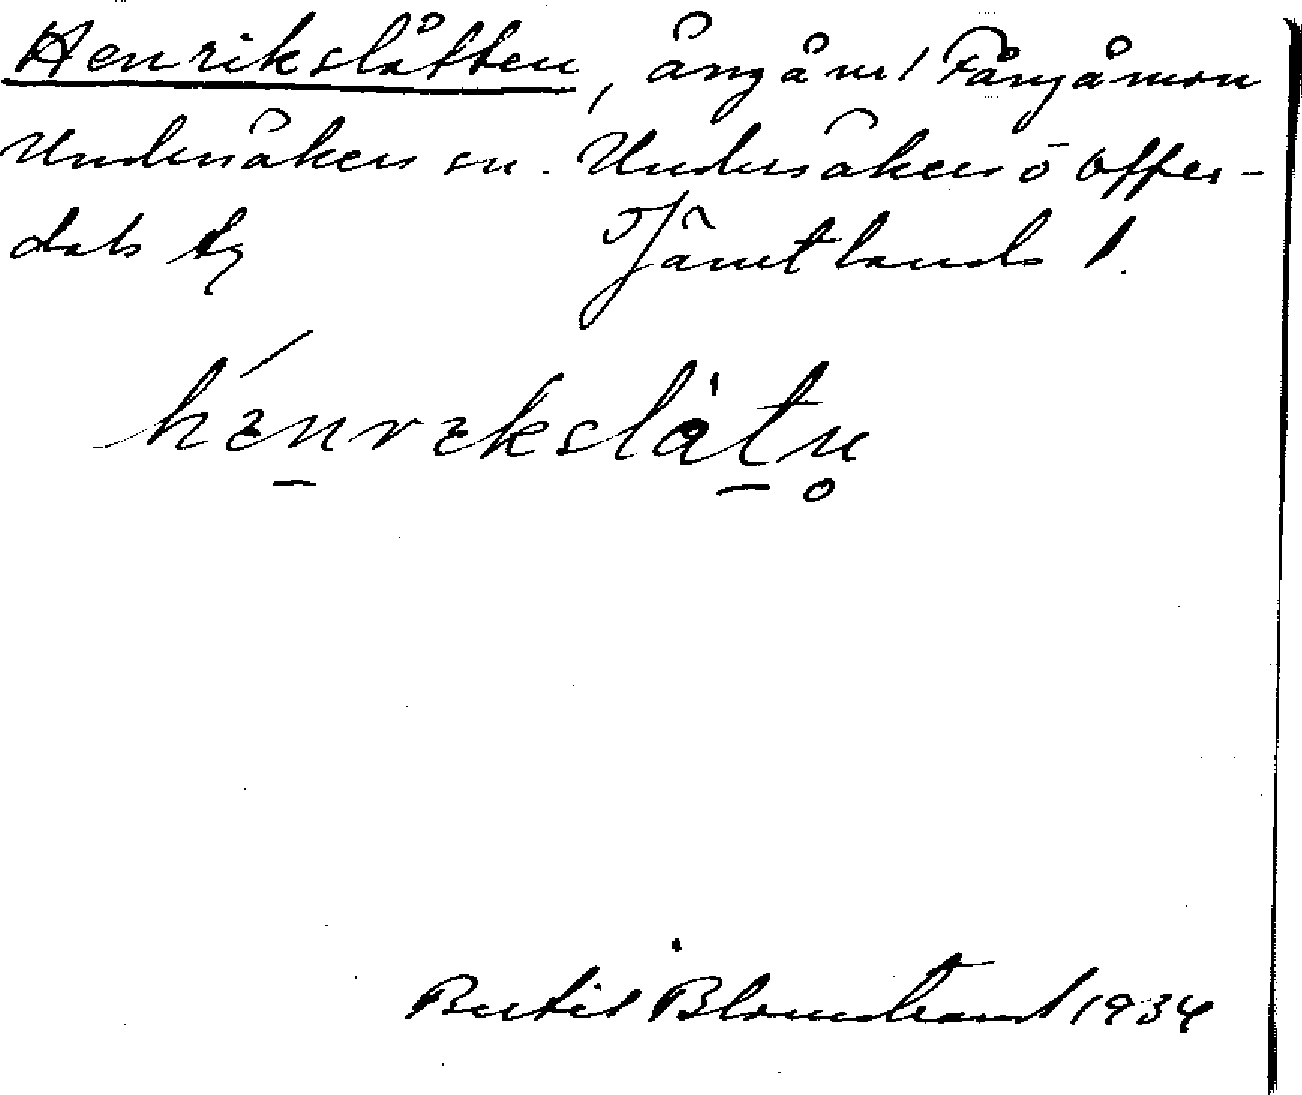 Henrikslåtten, ångåm / Fångåmon
Undersåkers sn. Undersåkers o Offer-
dals tg Jämtlands l.
hǽnrəkslåtn̥
Bertil Blomstrand 1934